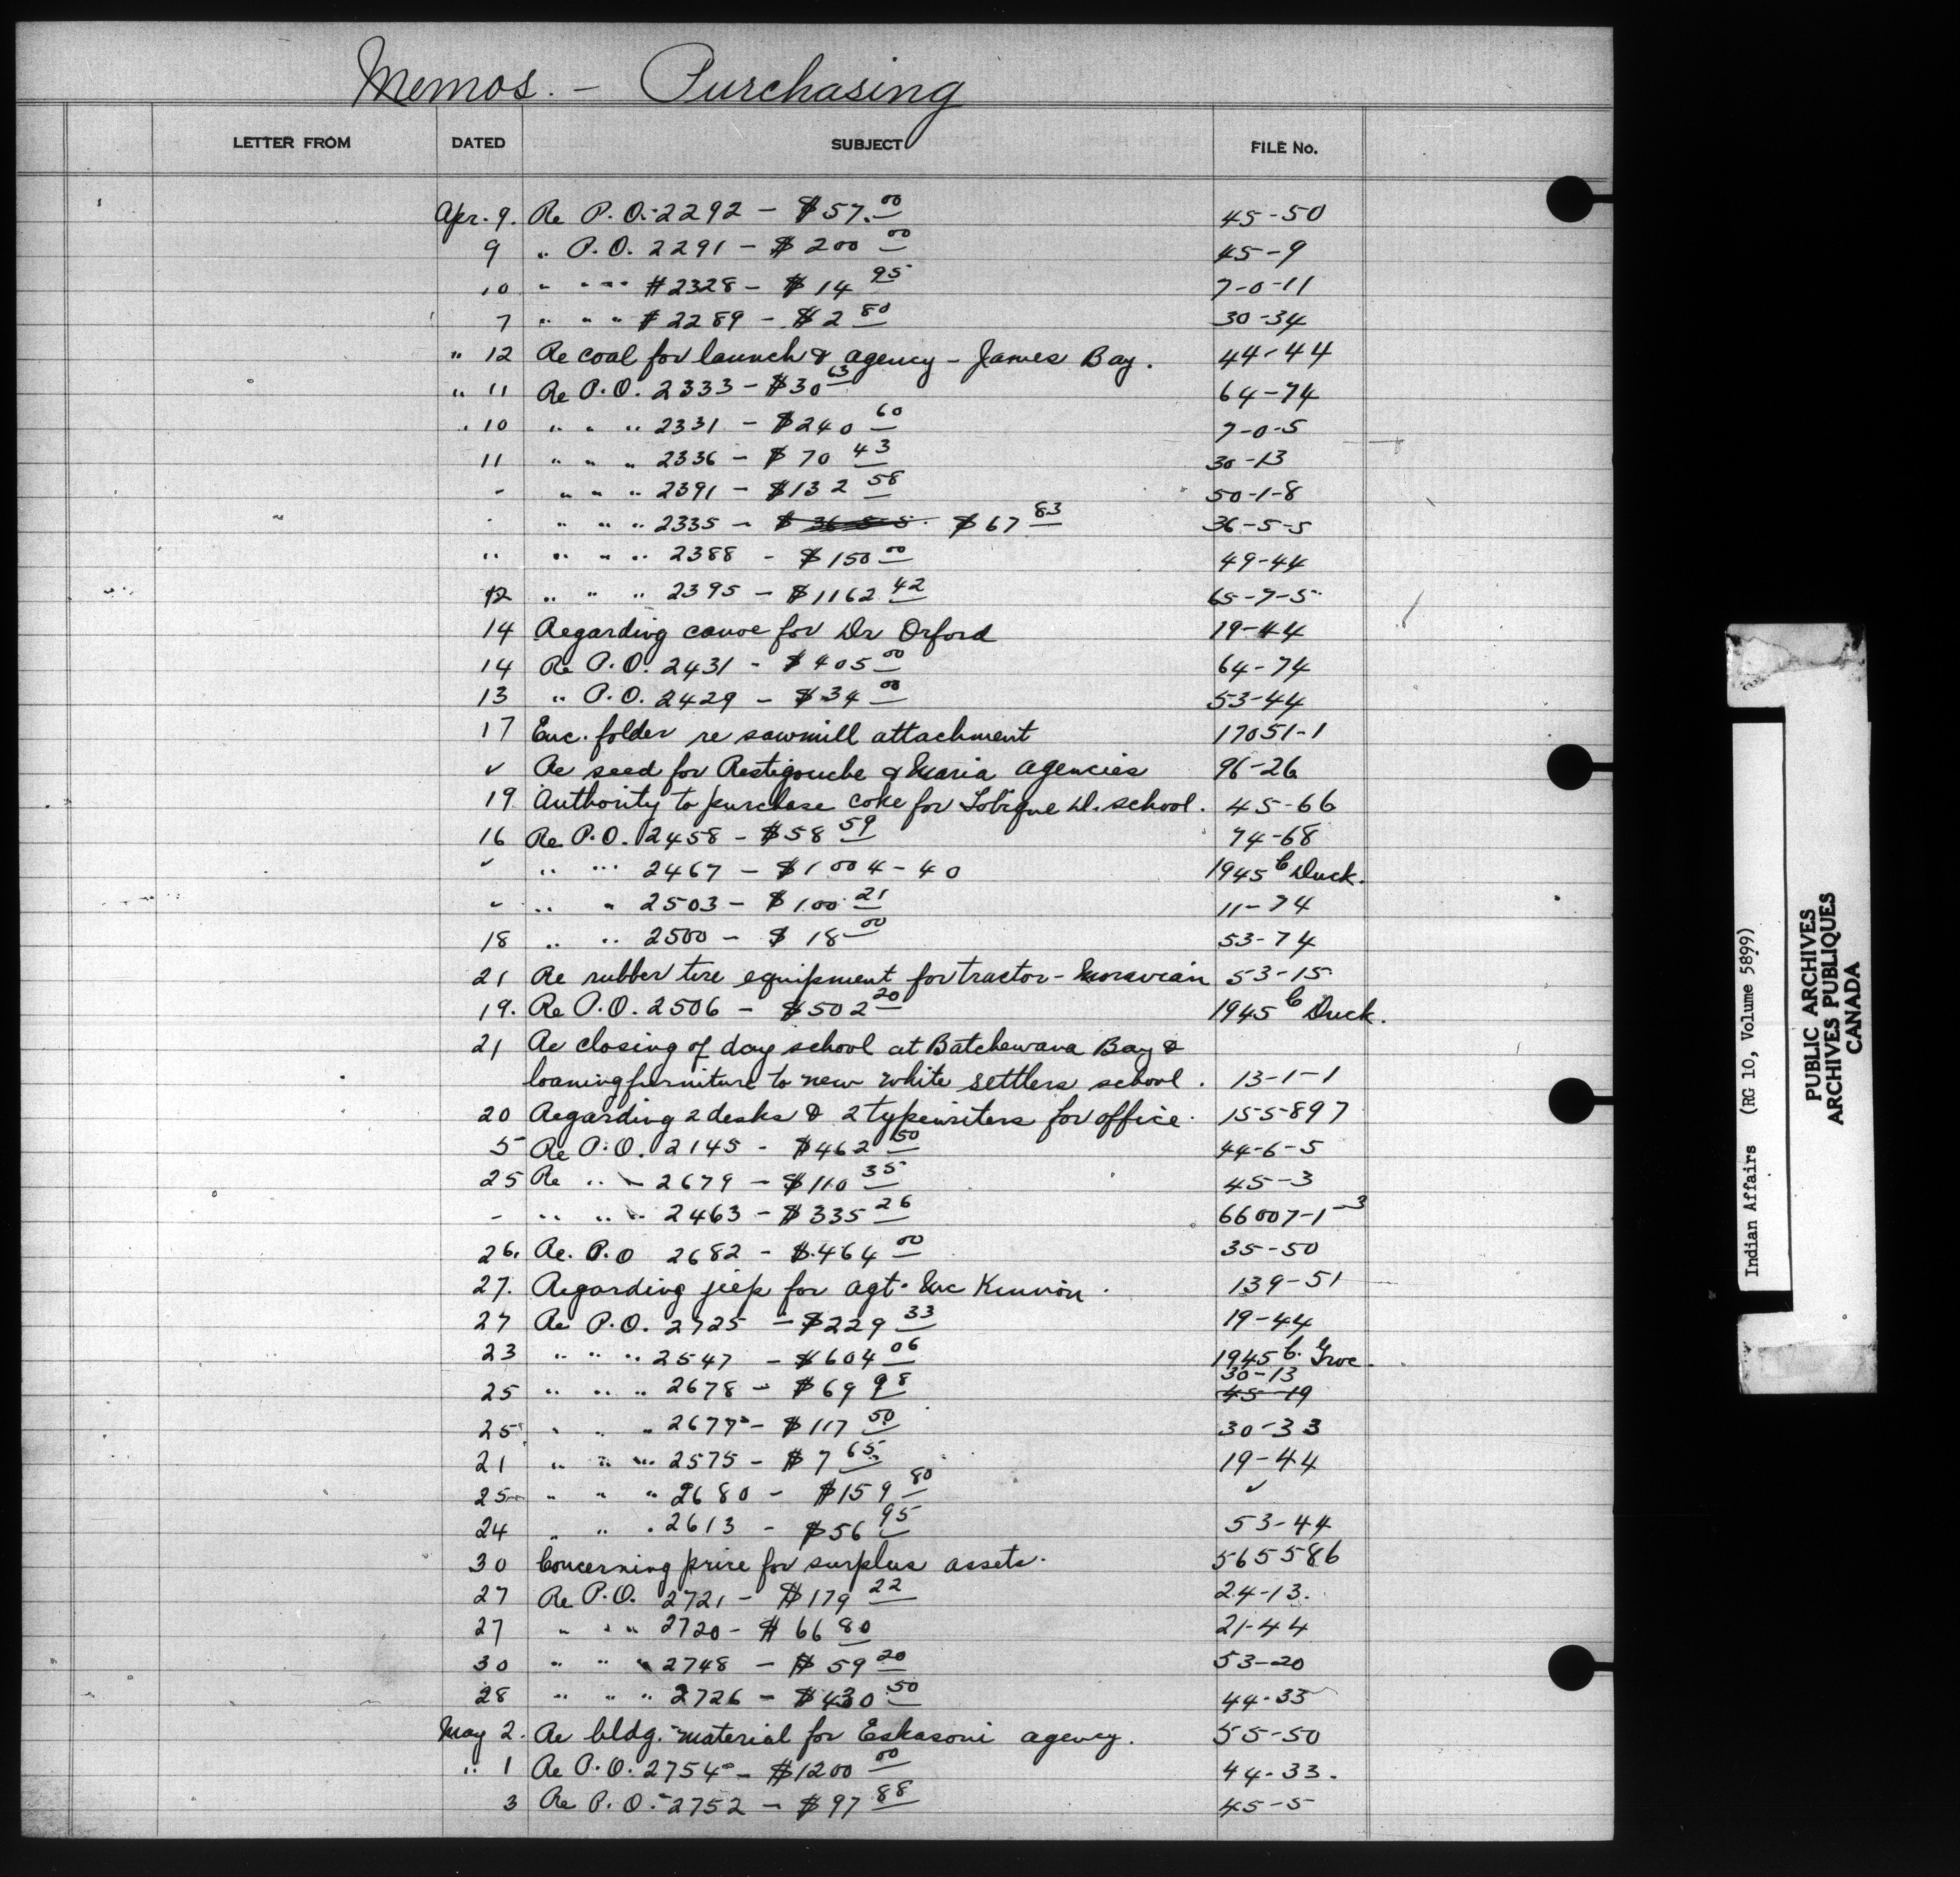 Memos. - Purchasing
LETTER FROM DATED SUBJECT FILE No.
Apr. 9. Re P.O. 2292 - $57.00 45-50
9 " P.O. 2291 - $200 00 45-9
10 " " " #2328 - $14 95 7-0-11
7 " " " #2289 - $2 80 30-34
" 12 Re coal for launch & agency - James Bay. 44-44
" 11 Re P.O. 2333 - $30 63 64-74
10 " " " 2331 - $240 60 7-0-5
11 " " " 2336 - $70 43 30-13
" " " " 2391 - $132 58 50-1-8
" " " " 2335 - $ 36-5-5. $67 83 36-5-5
" " " " 2388 - $150 00 49-44
12 " " " 2395 - $1162 42 65-7-5
14 Regarding canoe for Dr Orford 19-44
14 Re P.O. 2431 - $405 00 64-74
13 " P.O. 2429 - $34 00 53-44
17 Enc. folder re sawmill attachment 17051-1
" Re seed for Restigouche & Maria agencies 96-26
19 Authority to purchase coke for Tobique D. school. 45-66
16 Re P.O. 2458 - $58 59 74-68
" " " 2467 - $1004-40 1945 C Duck.
" " " 2503 - $100 21 11-74
18 " " 2500 - $18 00 53-74
21 Re rubber tire equipment for tractor - Moravian 53-15
19. Re P.O. 2506 - $502 20 1945 C Duck.
21 Re closing of day school at Batchewana Bay &
loaning furniture to new white settlers school. 13-1-1
20 Regarding 2 desks & 2 typewriters for office. 155-897
5 Re P.O. 2145 - $462 50 44-6-5
25 Re " " 2679 - $110 35 45-3
" " " " 2463 - $335 26 66007-1-3
26. Re. P.O 2682 - $464 00 35-50
27. Regarding jeep for agt. Mc Kinnon. 139-51
27 Re P.O. 2725 - $229 33 19-44
23 " " " 2547 - $604 06 1945 C. Groc.
30-13
25 " " " 2678 - $69 98 45-19
25 " " " 2677 - $117 50 30-33
21 " " " 2575 - $7 65 19-44
25 " " " 2680 - $159 80 "
24 " " " 2613 - $56 95 53-44
30 Concerning price for surplus assets. 565586
27 Re P.O. 2721 - $179 22 24-13.
27 " " " 2720 - $66 80 21-44
30 " " " 2748 - $59 20 53-20
28 " " " 2726 - $430 50 44-33
May 2. Re bldg. material for Eskasoni agency. 55-50
" 1 Re P.O. 2754 - $1200 00 44-33.
3 Re P.O. 2752 - $97 88 45-5
Indian Affairs (RG 10, Volume 5899)
PUBLIC ARCHIVES
ARCHIVES PUBLIQUES
CANADA